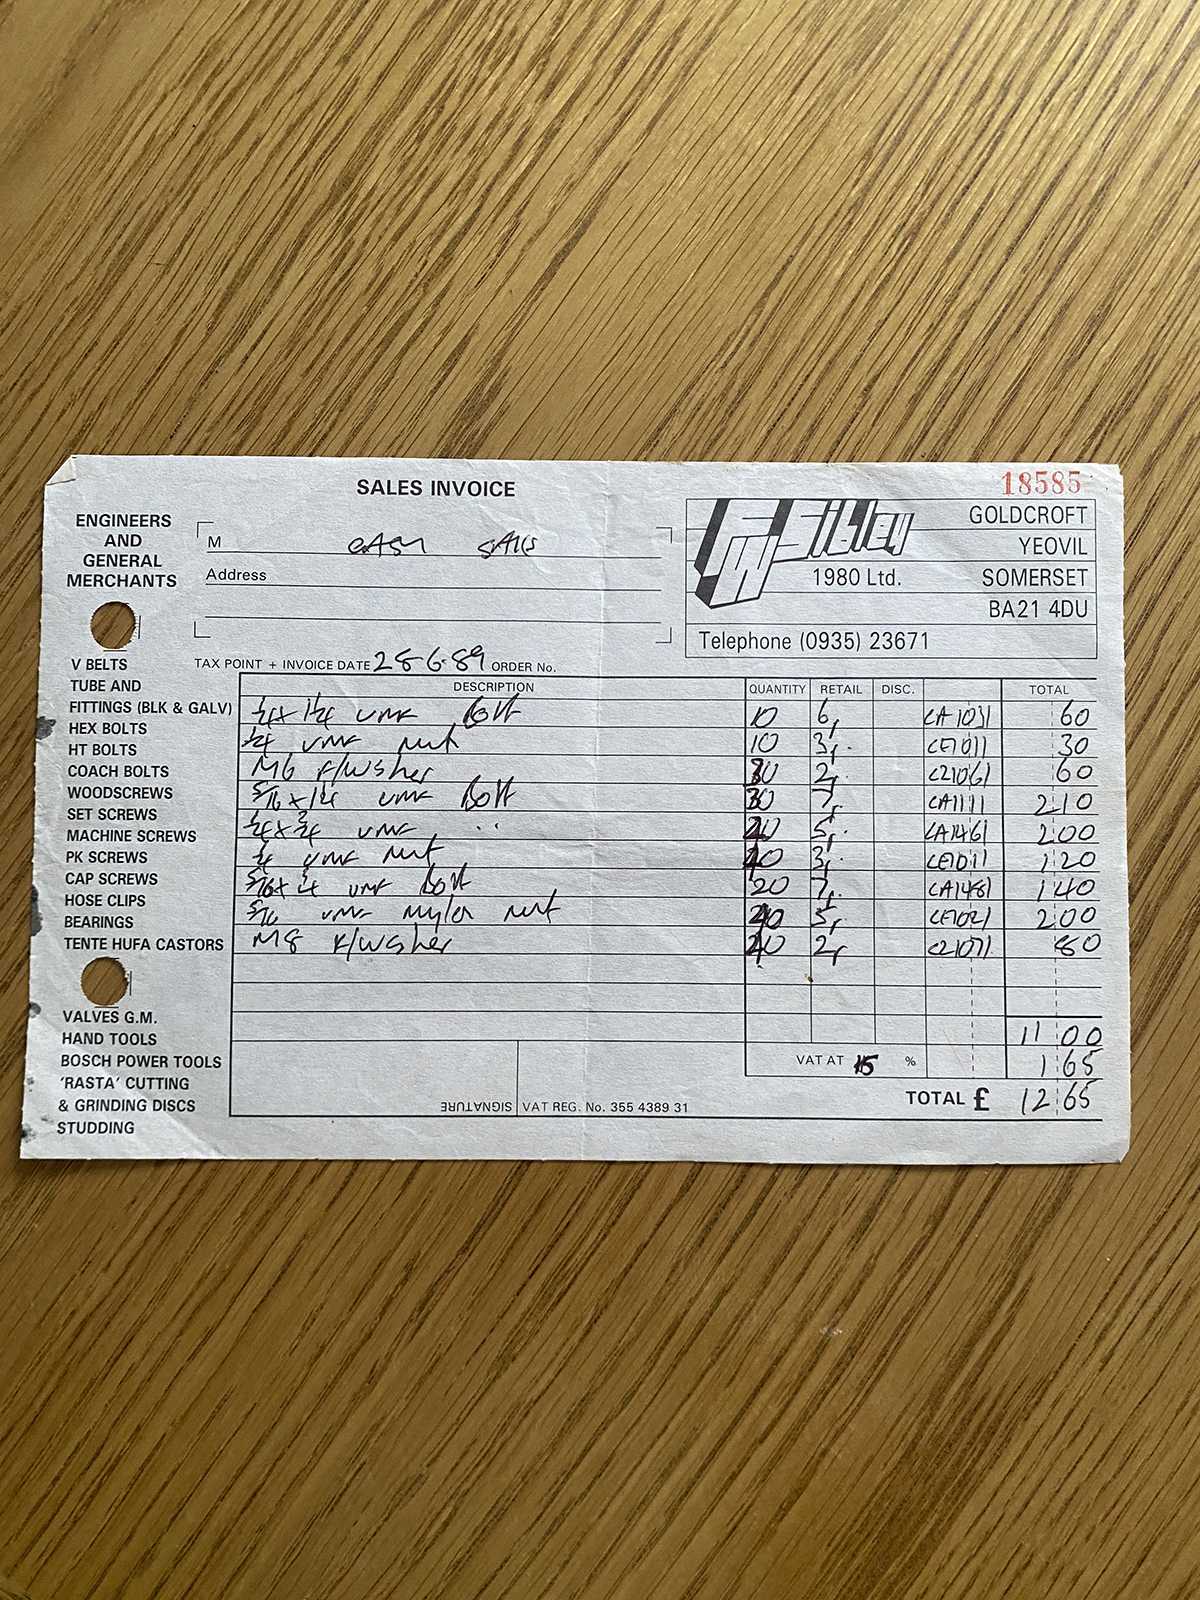 18585
SALES INVOICE
ENGINEERS
AND
GENERAL
MERCHANTS
M CASH SALES
Address
FW Sibley
1980 Ltd.
GOLDCROFT
YEOVIL
SOMERSET
BA21 4DU
Telephone (0935) 23671
TAX POINT + INVOICE DATE 28-6-89 ORDER No.
V BELTS
TUBE AND
FITTINGS (BLK & GALV)
HEX BOLTS
HT BOLTS
COACH BOLTS
WOODSCREWS
SET SCREWS
MACHINE SCREWS
PK SCREWS
CAP SCREWS
HOSE CLIPS
BEARINGS
TENTE HUFA CASTORS
VALVES G.M.
HAND TOOLS
BOSCH POWER TOOLS
'RASTA' CUTTING
& GRINDING DISCS
STUDDING
DESCRIPTION QUANTITY RETAIL DISC. TOTAL
1/4 x 1 1/4 UNF Bolt 10 6, CA1031 60
1/4 UNF Nut 10 3, CE1011 30
M6 F/wsher 30 2, CZ1061 60
5/16 x 1 1/4 UNF Bolt 30 7, CA1111 2 10
1/4 x 3/4 UNF " 40 5, CA1461 2 00
1/4 UNF Nut 40 3, CE1011 1 20
5/16 x 3/4 UNF Bolt 20 7, CA1481 1 40
5/16 UNF Nylon Nut 40 5, CE1021 2 00
M8 F/wsher 40 2, CZ1071 80
11 00
VAT AT 15 % 1 65
TOTAL £ 12 65
SIGNATURE VAT REG. No. 355 4389 31